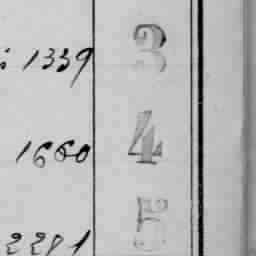 : 1339 3
1660 4
2281 5